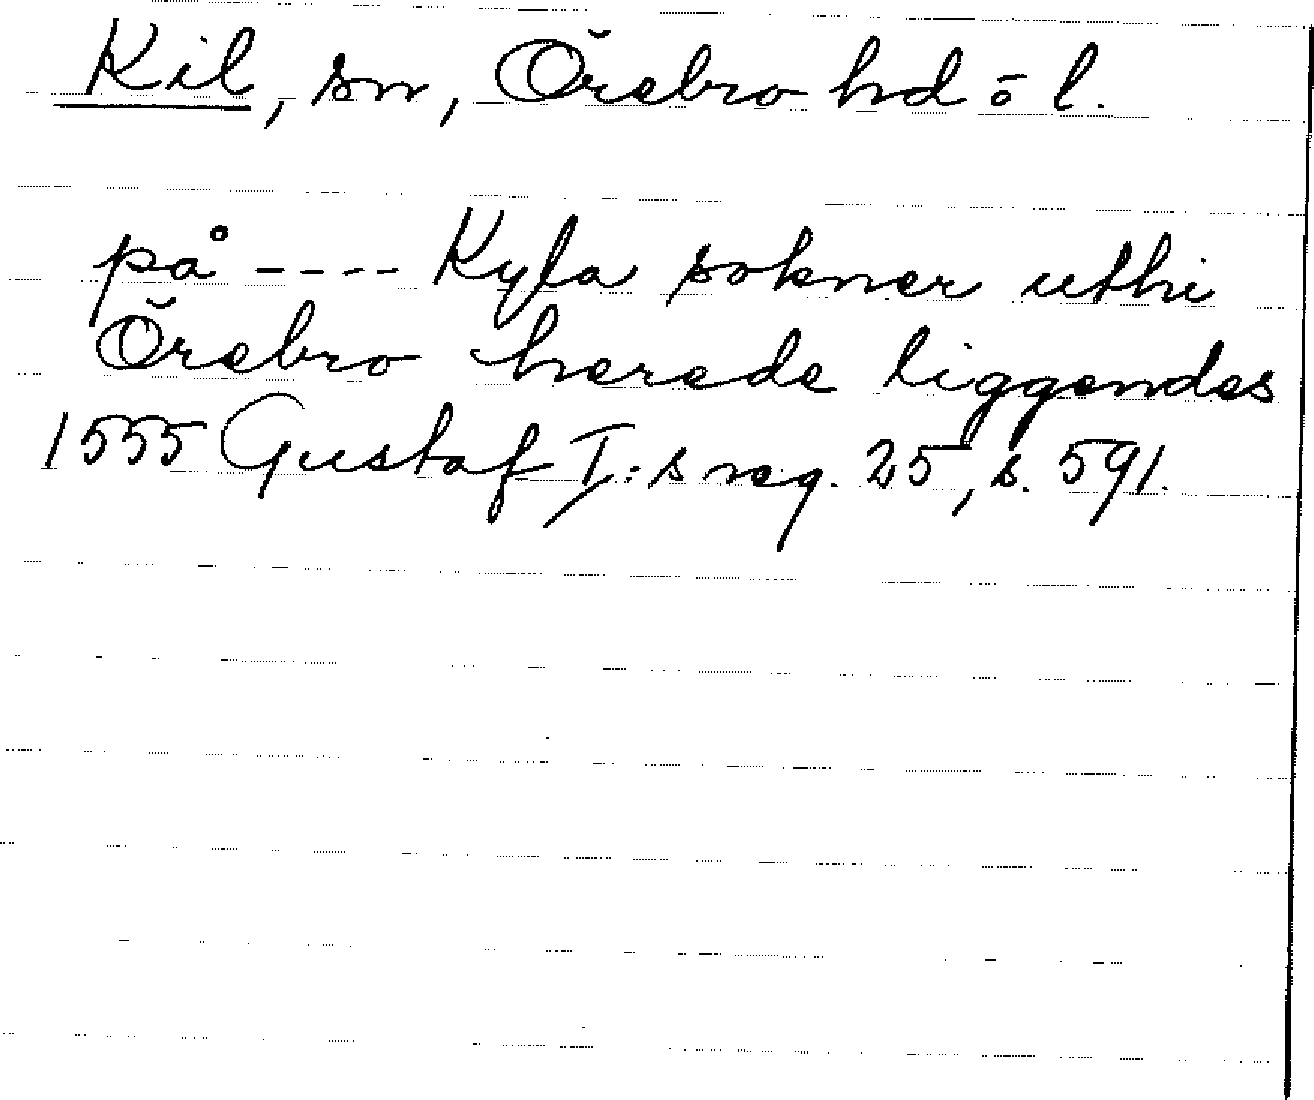 Kil, sn, Örebro hd ö l.
på ---- Kyla sokner uthi
Örebro herede liggendes
1555 Gustaf I:s reg. 25, s. 591.